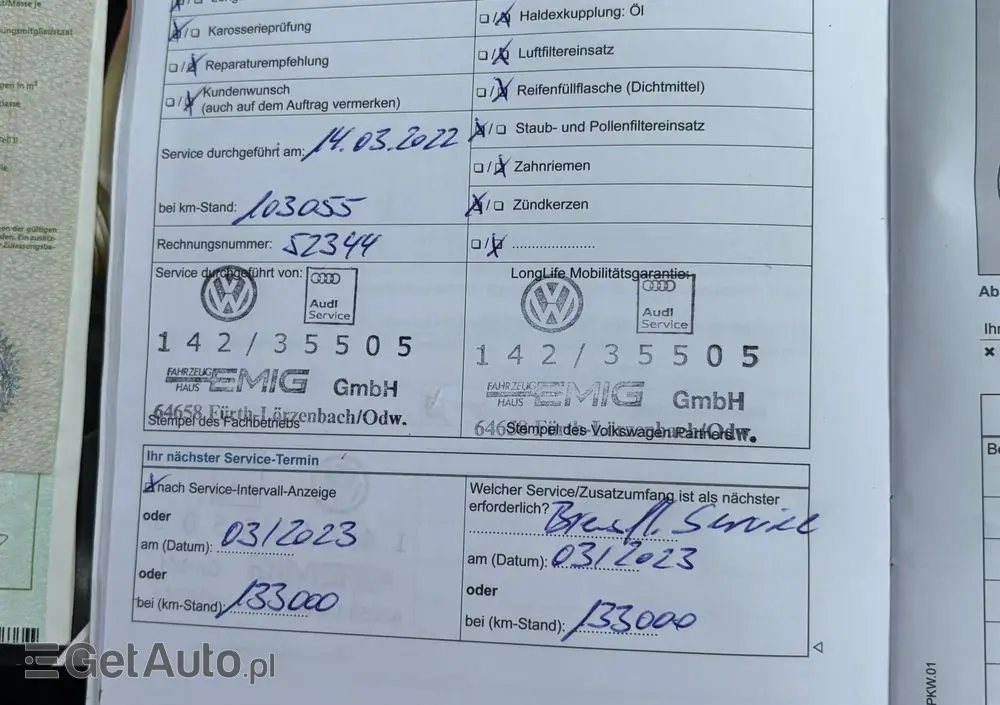 ungsmitgliedstaat
gen in m³
Karosserieprüfung
Reparaturempfehlung
Kundenwunsch
(auch auf dem Auftrag vermerken)
Service durchgeführt am: 14.03.2022
bei km-Stand: 103055
Rechnungsnummer: 52344
Haldexkupplung: Öl
Luftfiltereinsatz
Reifenfüllflasche (Dichtmittel)
Staub- und Pollenfiltereinsatz
Zahnriemen
Zündkerzen
Service durchgeführt von:
Audi
Service
142/35505
FAHRZEUG
HAUS EMIG GmbH
64658 Fürth-Lörzenbach/Odw.
Stempel des Fachbetriebs
LongLife Mobilitätsgarantie:
Audi
Service
142/35505
FAHRZEUG
HAUS EMIG GmbH
Stempel des Volkswagen Partners
Ihr nächster Service-Termin
nach Service-Intervall-Anzeige
oder
am (Datum): 03/2023
oder
bei (km-Stand): 133000
Welcher Service/Zusatzumfang ist als nächster
erforderlich? Bremsfl. Service
am (Datum): 03/2023
oder
bei (km-Stand): 133000
Ab
Ihr
Be
PKW.01
GetAuto.pl